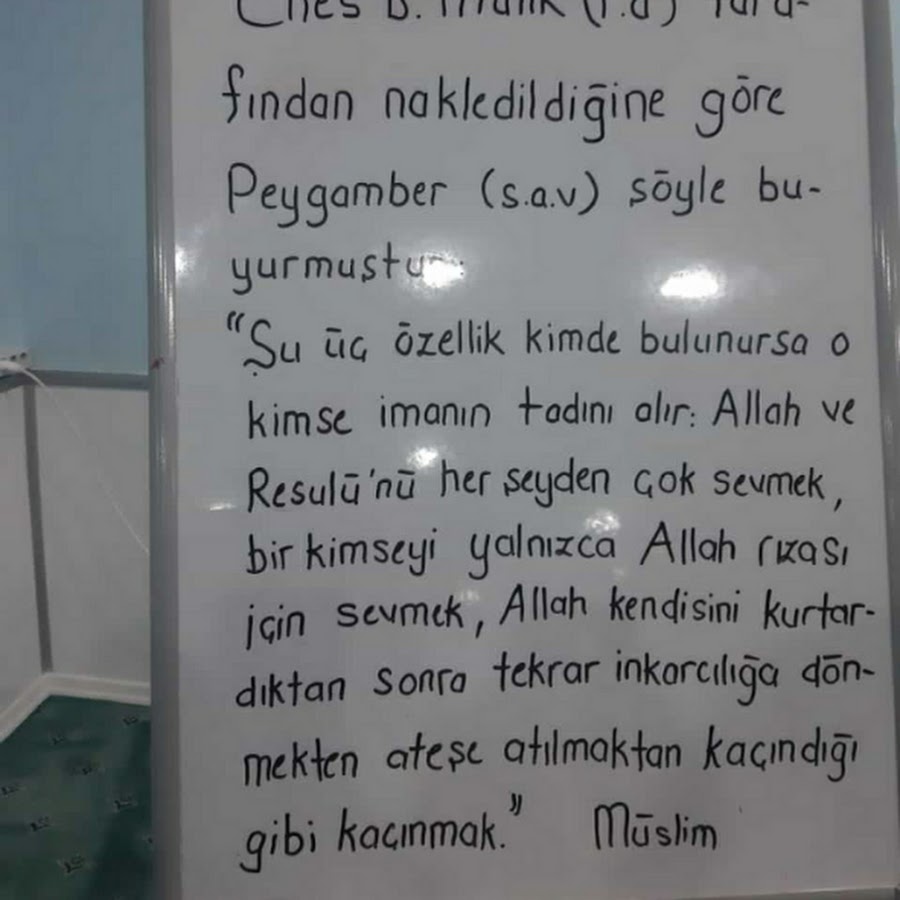 Enes B. Malik (r.a) tara-
fından nakledildiğine göre
Peygamber (s.a.v) söyle bu-
yurmuştur:
"Şu üç özellik kimde bulunursa o
kimse imanın tadını alır: Allah ve
Resulü'nü her şeyden çok sevmek,
bir kimseyi yalnızca Allah rızası
için sevmek, Allah kendisini kurtar-
dıktan sonra tekrar inkarcılığa dön-
mekten ateşe atılmaktan kaçındığı
gibi kaçınmak." Müslim